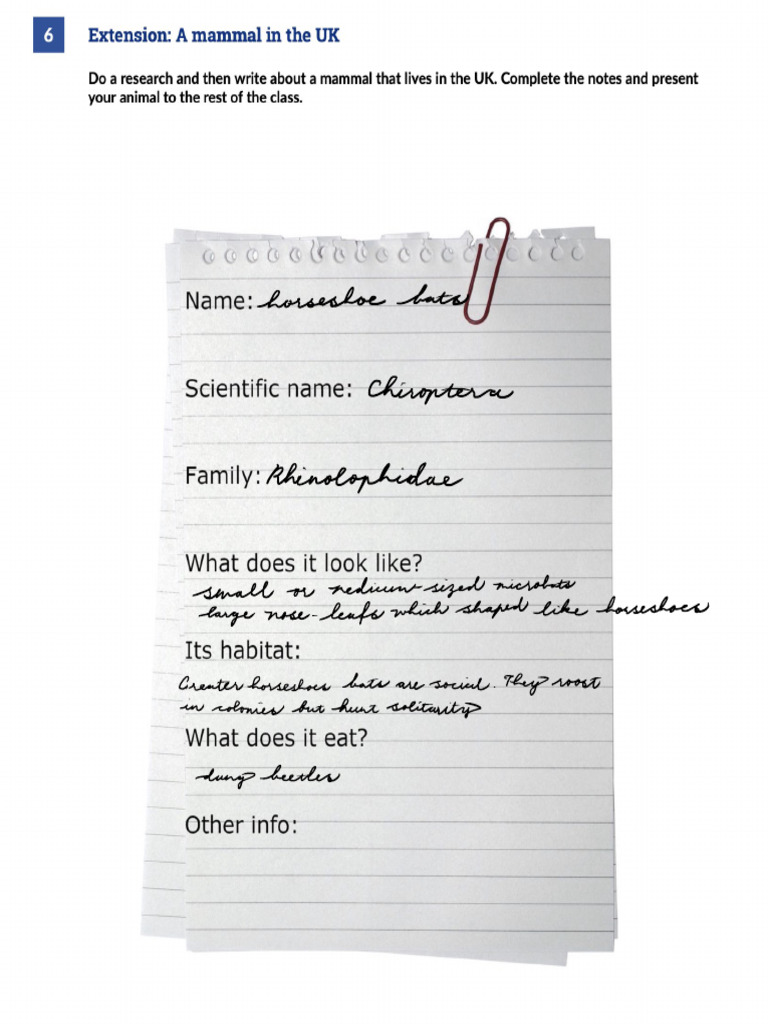 6 Extension: A mammal in the UK
Do a research and then write about a mammal that lives in the UK. Complete the notes and present
your animal to the rest of the class.
Name: horseshoe bats
Scientific name: Chiroptera
Family: Rhinolophidae
What does it look like?
small or medium-sized microbats
large nose-leafs which shaped like horseshoes
Its habitat:
Greater horseshoes bats are social. They roost
in colonies but hunt solitarity
What does it eat?
dung beetles
Other info: